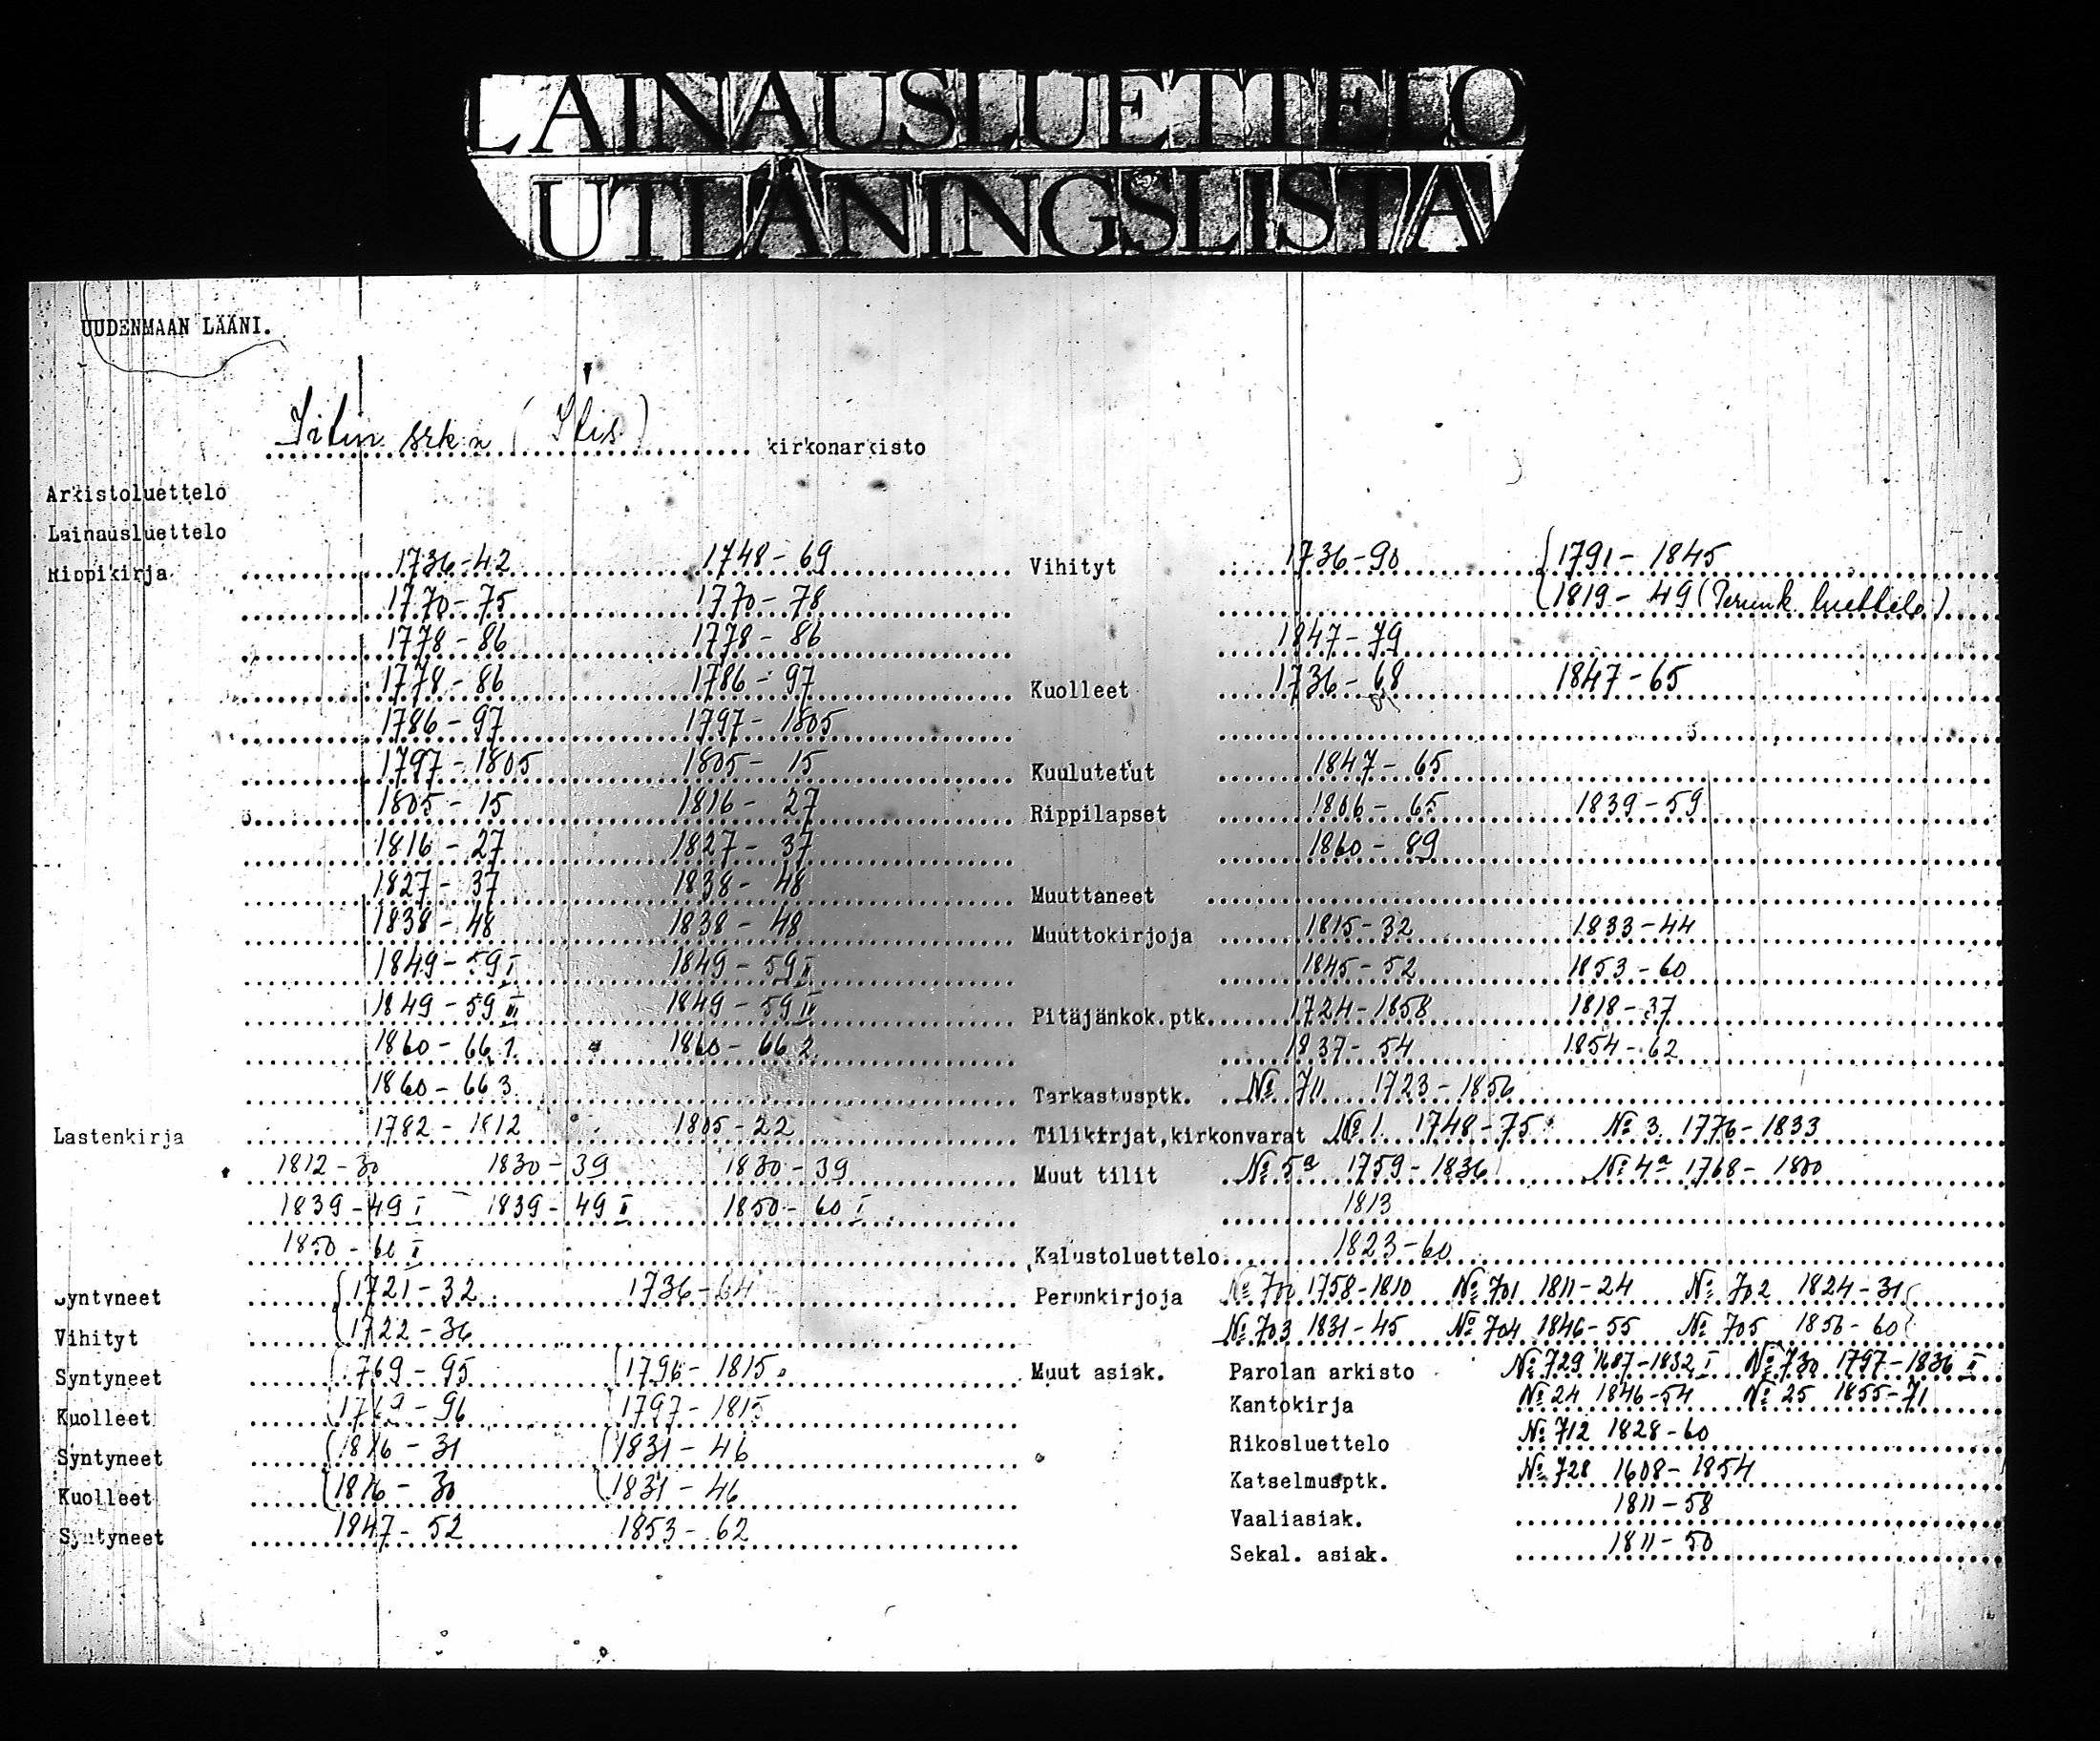 LAINAUSLUETTELO
UTLÅNINGSLISTA
UUDENMAAN LÄÄNI.
Iitin srk:n (Itis) kirkonarkisto
Arkistoluettelo
Lainausluettelo
Rippikirja 1736-42 1748-69
1770-75 1770-78
1778-86 1778-86
1778-86 1786-97
1786-97 1797-1805
1797-1805 1805-15
1805-15 1816-27
1816-27 1827-37
1827-37 1838-48
1838-48 1838-48
1849-59 I 1849-59 II
1849-59 III 1849-59 IV
1860-66 1. 1860-66 2.
1860-66 3.
Lastenkirja 1782-1812 1805-22
1812-30 1830-39 1830-39
1839-49 I 1839-49 II 1850-60 I
1850-60 II
Syntyneet {1721-32 1736-64
Vihityt {1722-36
Syntyneet {1769-95 {1796-1815
Kuolleet {1769-96 {1797-1815
Syntyneet {1816-31 {1831-46
Kuolleet {1816-30 {1831-46
Syntyneet 1847-52 1853-62
Vihityt 1736-90 {1791-1845
{1819-49 (Perunk. luettelo)
1847-79
Kuolleet 1736-68 1847-65
Kuulutetut 1847-65
Rippilapset 1806-65 1839-59
1860-89
Muuttaneet
Muuttokirjoja 1815-32 1833-44
1845-52 1853-60
Pitäjänkok.ptk. 1724-1858 1818-37
1837-54 1854-62
Tarkastusptk. № 711 1723-1850
Tilikirjat,kirkonvarat № 1 1748-75 № 3 1776-1833
Muut tilit № 5a 1759-1836 № 4a 1768-1800
1813
Kalustoluettelo 1823-60
Perunkirjoja № 700 1758-1810 № 701 1811-24 № 702 1824-31
№ 703 1831-45 № 704 1846-55 № 705 1856-60
Muut asiak. Parolan arkisto № 729 1607-1832 I № 730 1797-1836 II
Kantokirja № 24 1846-54 № 25 1855-71
Rikosluettelo № 712 1828-60
Katselmusptk. № 728 1608-1854
Vaaliasiak. 1811-58
Sekal. asiak. 1811-50